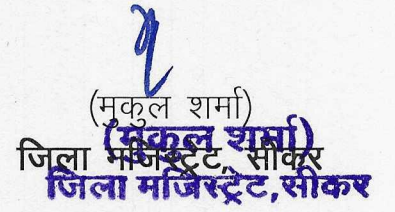 (मुकुल शर्मा)
(मुकुल शर्मा)
जिला मजिस्ट्रेट, सीकर
जिला मजिस्ट्रेट,सीकर